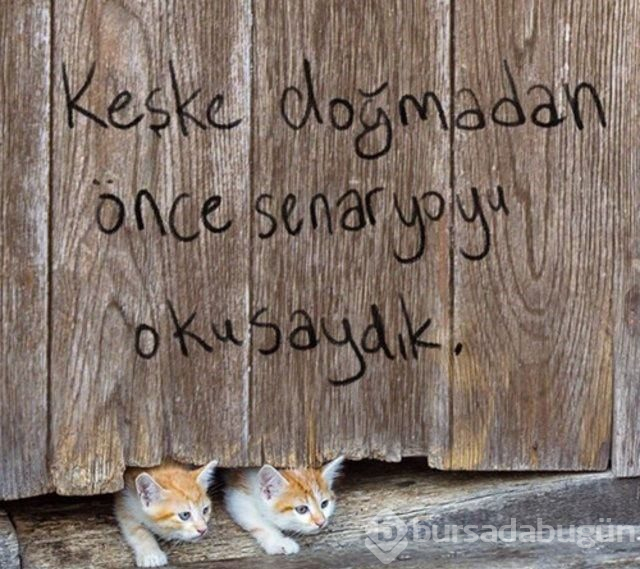 Keşke doğmadan
önce senaryoyu
okusaydık.
bursadabugün